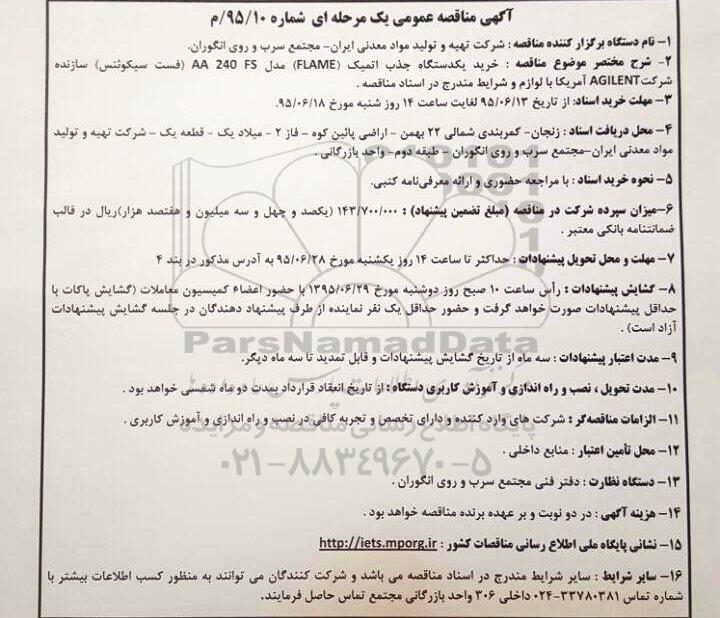 آگهی مناقصه عمومی یک مرحله ای شماره ۹۵/۱۰/م
۱- نام دستگاه برگزار کننده مناقصه : شرکت تهیه و تولید مواد معدنی ایران- مجتمع سرب و روی انگوران.
۲- شرح مختصر موضوع مناقصه : خرید یکدستگاه جذب اتمیک (FLAME) مدل AA 240 FS (فست سیکوئنس) سازنده
شرکت AGILENT آمریکا با لوازم و شرایط مندرج در اسناد مناقصه .
۳- مهلت خرید اسناد: از تاریخ ۹۵/۰۶/۱۳ لغایت ساعت ۱۴ روز شنبه مورخ ۹۵/۰۶/۱۸.
۴- محل دریافت اسناد : زنجان- کمربندی شمالی ۲۲ بهمن - اراضی پائین کوه - فاز ۲ - میلاد یک - قطعه یک - شرکت تهیه و تولید
مواد معدنی ایران-مجتمع سرب و روی انگوران - طبقه دوم- واحد بازرگانی .
۵- نحوه خرید اسناد : با مراجعه حضوری و ارائه معرفی‌نامه کتبی.
۶-میزان سپرده شرکت در مناقصه (مبلغ تضمین پیشنهاد) : ۱۴۳/۷۰۰/۰۰۰ (یکصد و چهل و سه میلیون و هفتصد هزار)ریال در قالب
ضمانتنامه بانکی معتبر .
۷- مهلت و محل تحویل پیشنهادات : حداکثر تا ساعت ۱۴ روز یکشنبه مورخ ۹۵/۰۶/۲۸ به آدرس مذکور در بند ۴
۸- گشایش پیشنهادات : رأس ساعت ۱۰ صبح روز دوشنبه مورخ ۱۳۹۵/۰۶/۲۹ با حضور اعضاء کمیسیون معاملات (گشایش پاکات با
حداقل پیشنهادات صورت خواهد گرفت و حضور حداقل یک نفر نماینده از طرف پیشنهاد دهندگان در جلسه گشایش پیشنهادات
آزاد است) .
ParsNamadData
۹- مدت اعتبار پیشنهادات : سه ماه از تاریخ گشایش پیشنهادات و قابل تمدید تا سه ماه دیگر.
۱۰- مدت تحویل ، نصب و راه اندازی و آموزش کاربری دستگاه : از تاریخ انعقاد قرارداد بمدت دو ماه شمسی خواهد بود .
۱۱- الزامات مناقصه‌گر : شرکت های وارد کننده و دارای تخصص و تجربه کافی در نصب و راه اندازی و آموزش کاربری .
پایگاه اطلاع رسانی مناقصه و مزایده
۱۲- محل تأمین اعتبار : منابع داخلی .
۰۲۱-۸۸۳۴۹۶۷۰-۵
۱۳- دستگاه نظارت : دفتر فنی مجتمع سرب و روی انگوران .
۱۴- هزینه آگهی : در دو نوبت و بر عهده برنده مناقصه خواهد بود .
۱۵- نشانی پایگاه ملی اطلاع رسانی مناقصات کشور : http://iets.mporg.ir
۱۶- سایر شرایط : سایر شرایط مندرج در اسناد مناقصه می باشد و شرکت کنندگان می توانند به منظور کسب اطلاعات بیشتر با
شماره تماس ۳۳۷۸۰۳۸۱-۰۲۴ داخلی ۳۰۶ واحد بازرگانی مجتمع تماس حاصل فرمایند.